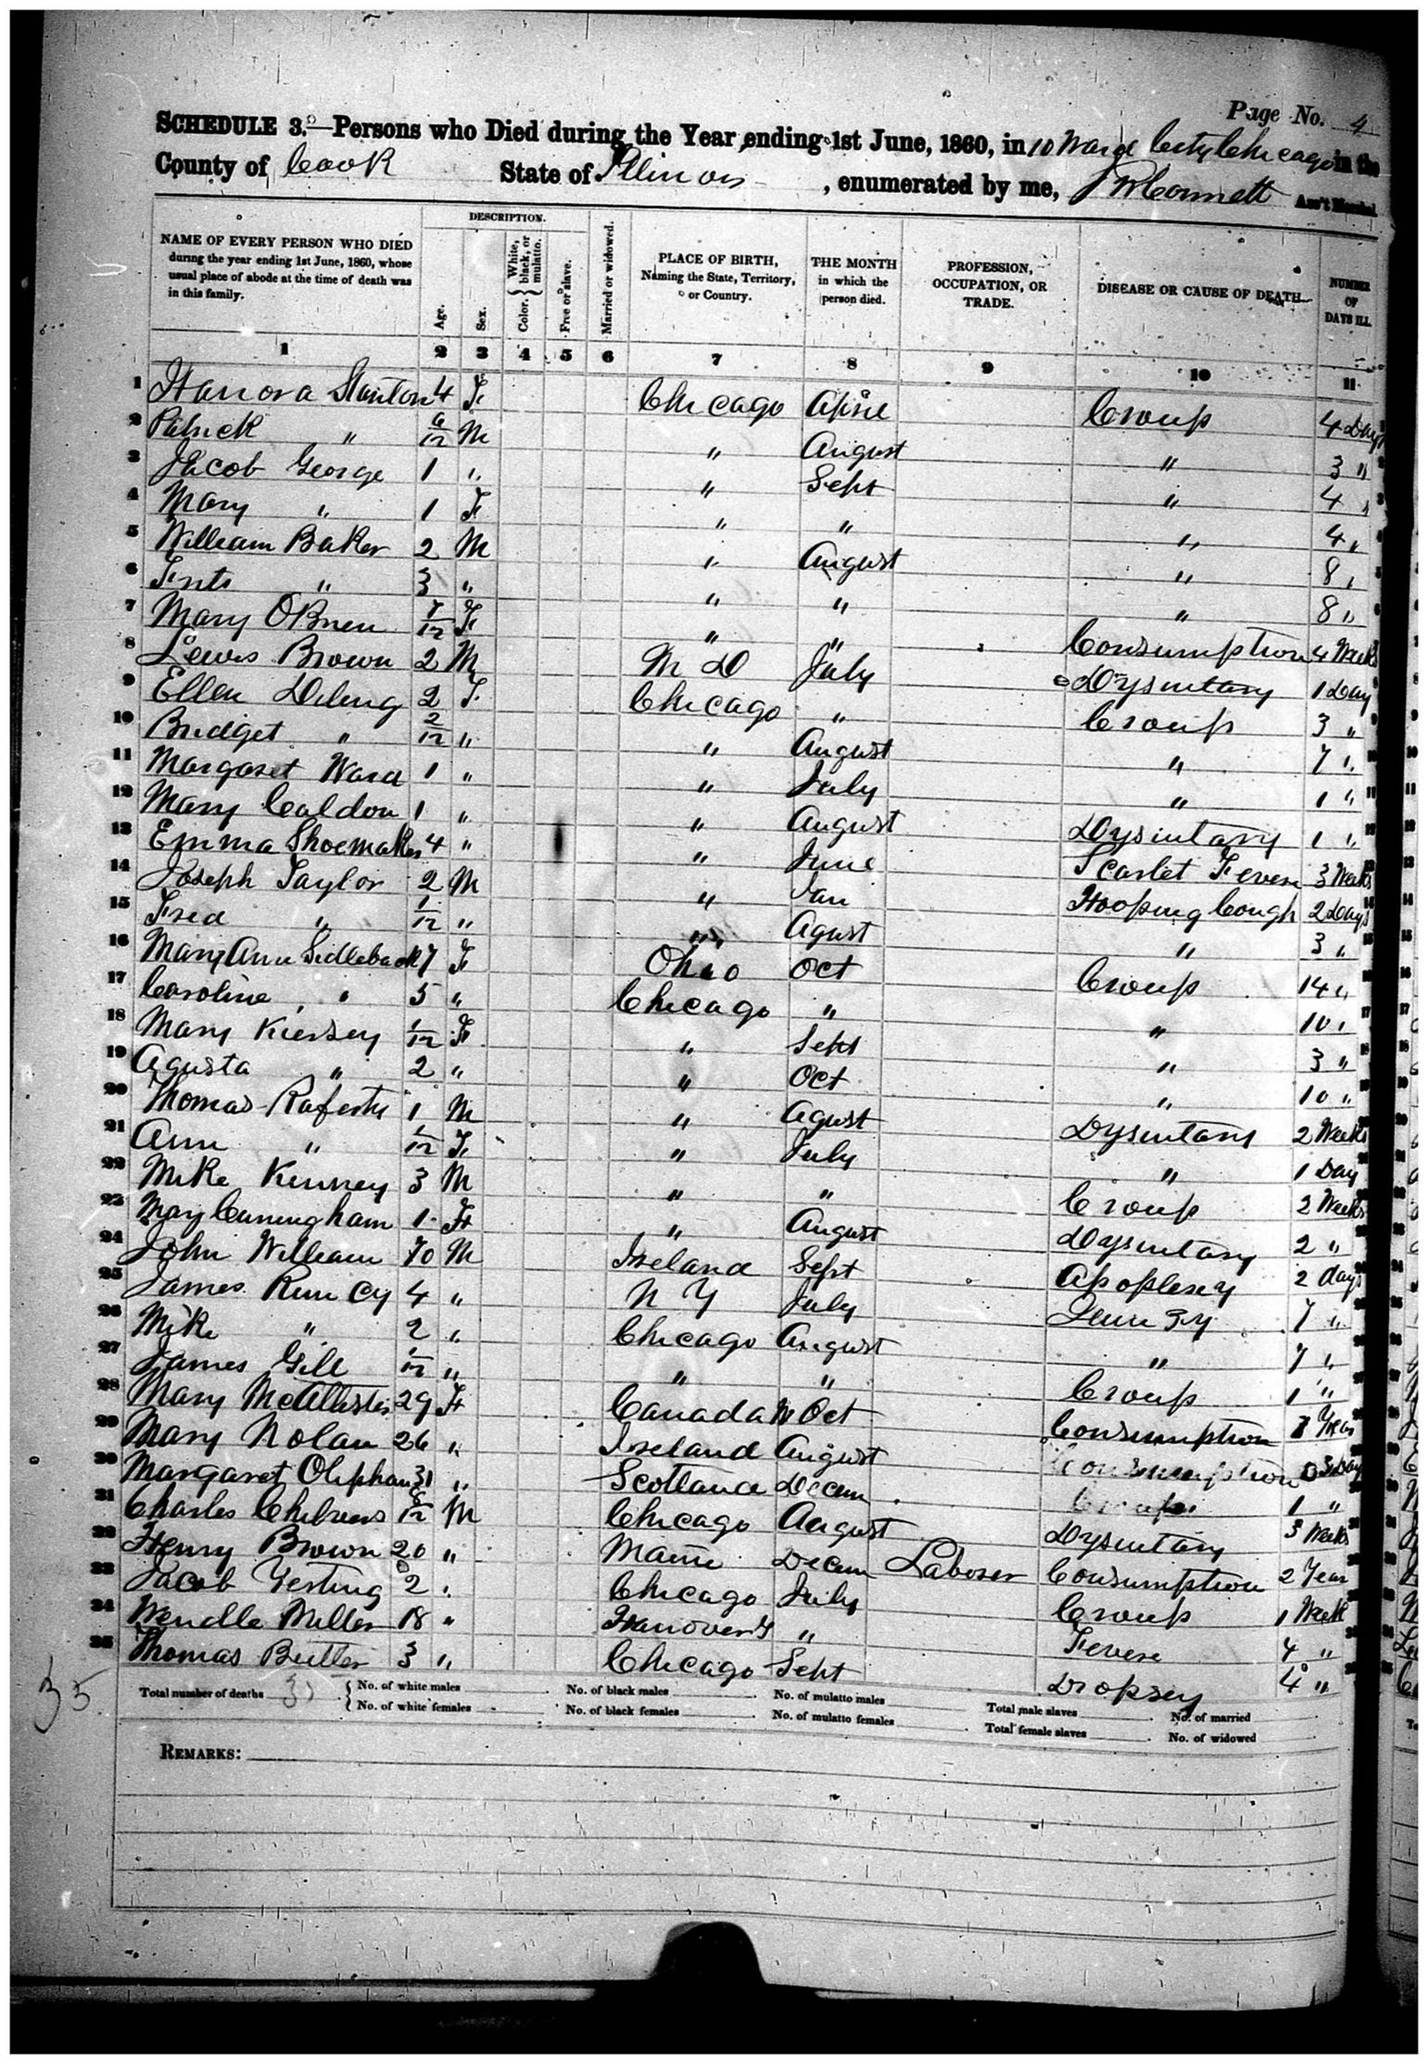 Page No. 4
SCHEDULE 3.—Persons who Died during the Year ending 1st June, 1860, in 10 Ward City Chicago in the
County of Cook State of Illinois, enumerated by me, Ass't Marshal.
DESCRIPTION.
NAME OF EVERY PERSON WHO DIED
during the year ending 1st June, 1860, whose
usual place of abode at the time of death was
in this family.
Age.
Sex.
Color. { White, black, or mulatto.
Free or slave.
Married or widowed.
PLACE OF BIRTH,
Naming the State, Territory,
or Country.
THE MONTH
in which the
person died.
PROFESSION,
OCCUPATION, OR
TRADE.
DISEASE OR CAUSE OF DEATH.
NUMBER
OF
DAYS ILL.
1 2 3 4 5 6 7 8 9 10 11
1 Hanora Stanton 4 F Chicago Aprile Croup 4 Days
2 Patrick " 6/12 M " August " 3 "
3 Jacob George 1 " " Sept " 4 "
4 Mary " 1 F " " " 4 "
5 William Baker 2 M " August " 8 "
6 " 3 " " " " 8 "
7 Mary OBrien 7/12 F " " Consumption 4 Weeks
8 Lewis Brown 2 M M D July Dysintary 1 Day
9 Ellen 2 F Chicago " Croup 3 "
10 Bridget " 2/12 " " August " 7 "
11 Margaret Ward 1 " " July " 1 "
12 Mary Caldon 1 " " August Dysintary 1 "
13 Emma Shoemaker 4 " " June Scarlet Fevere 3 Weeks
14 Joseph Taylor 2 M " Jan Hooping Cough 2 Days
15 Fred " 1/12 " " Agust " 3 "
16 Mary Ann Sidleback 7 F Ohio Oct Croup 14 "
17 Caroline " 5 " Chicago " " 10 "
18 Mary Kiersey 1/12 F " Sept " 3 "
19 Agusta " 2 " " Oct " 10 "
20 Thomas Raferty 1 M " Agust Dysintary 2 Weeks
21 Ann " 1/12 F " July " 1 Day
22 Mike Kinney 3 M " " Croup 2 Weeks
23 May Cuningham 1 F " August Dysintary 2 "
24 John William 70 M Ireland Sept Apoplexey 2 days
25 James 4 " N Y July 7 "
26 Mike " 2 " Chicago August " 7 "
27 James Gill 1/12 " " " Croup 1 "
28 Mary McAllister 29 F Canada W Oct Consumption 1 Year
29 Mary Nolan 26 " Ireland August Consumption
30 Margaret Oliphan 31 " Scotland Decem Croup 1 "
31 Charles 8/12 M Chicago August Dysintary 3 Weeks
32 Henry Brown 20 " Maine Decem Laborer Consumption 2 Year
33 Jacob Gerting 2 " Chicago July Croup 1 Week
34 Wendle Miller 18 " Hanover " Fevere 4 "
35 Thomas Butler 3 " Chicago Sept Dropsey 4 "
35
Total number of deaths 35 { No. of white males No. of black males No. of mulatto males Total male slaves No. of married
{ No. of white females No. of black females No. of mulatto females Total female slaves No. of widowed
REMARKS: